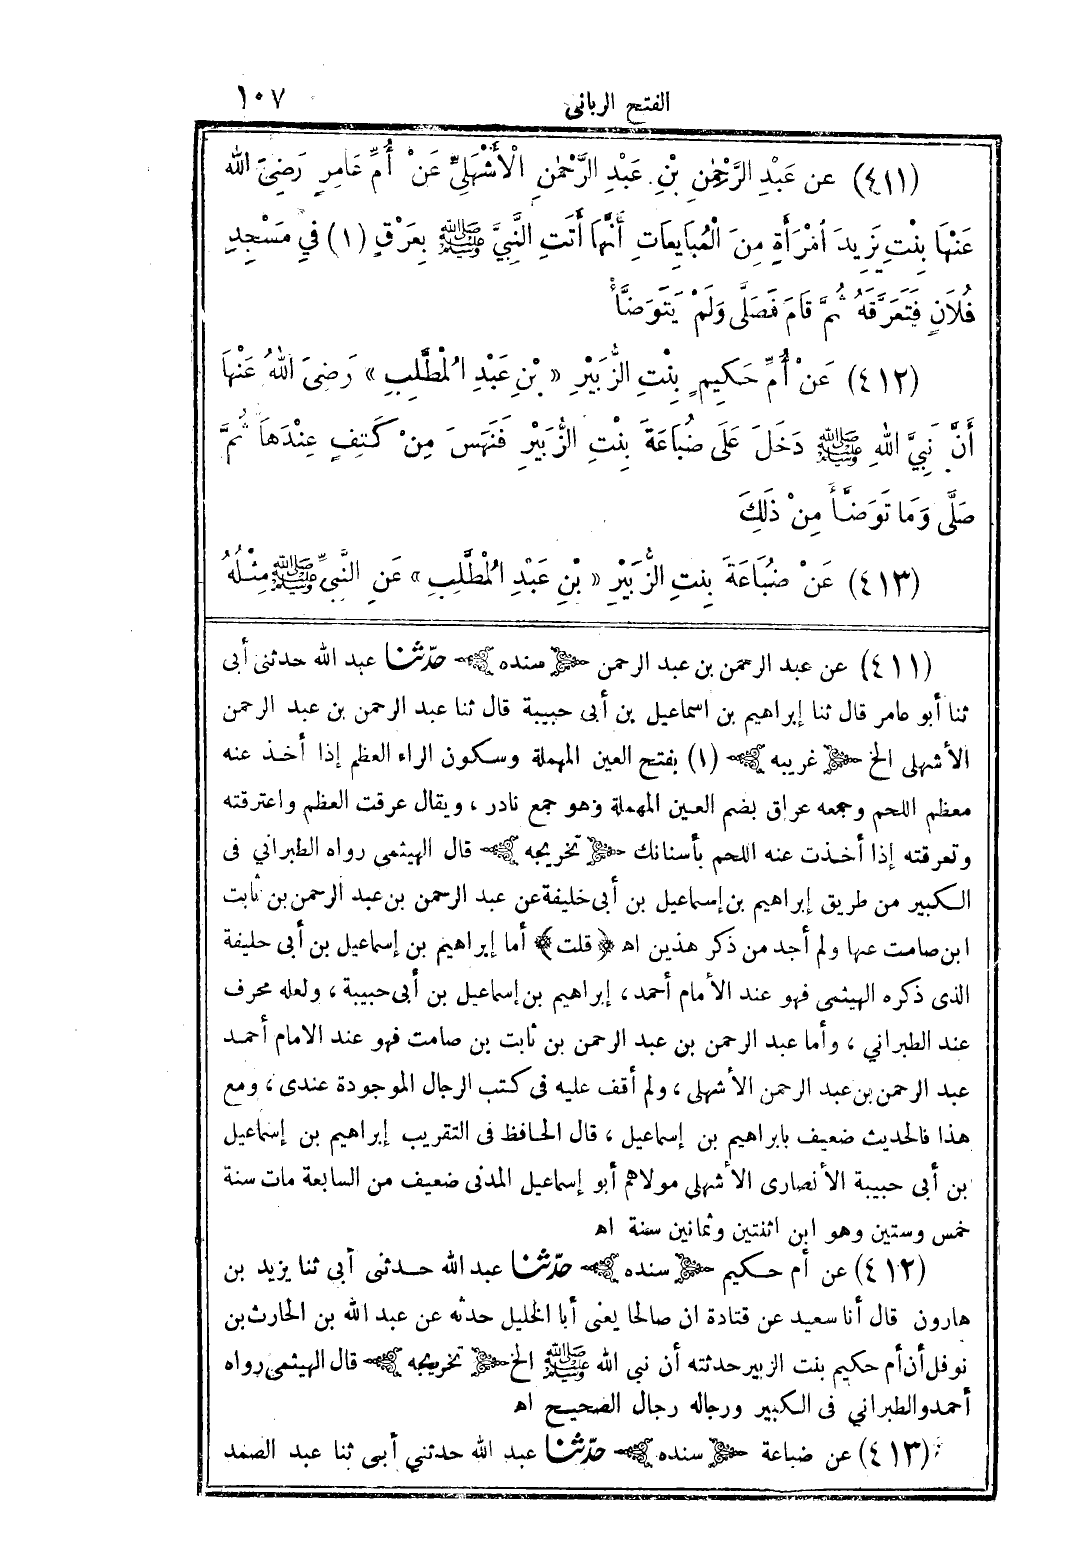 الفتح الربانى ١٠٧
(٤١١) عن عَبْدِ الرَّحْمٰنِ بْنِ عَبْدِ الرَّحْمٰنِ الْأَشْهَلِىِّ عَنْ أُمِّ عَامِرٍ رَضِىَ اللهُ
عَنْهَا بِنْتِ يَزِيدَ اُمْرَأَةٍ مِنَ الْمُبَايِعَاتِ أَنَّهَا أَتَتِ النَّبِىَّ ﷺ بِعَرْقٍ (١) فِي مَسْجِدِ
فُلَانٍ فَتَعَرَّقَهُ ثُمَّ قَامَ فَصَلَّى وَلَمْ يَتَوَضَّأْ
(٤١٢) عَنْ أُمِّ حَكِيمٍ بِنْتِ الزُّبَيْرِ « بْنِ عَبْدِ الْمُطَّلِبِ » رَضِىَ اللهُ عَنْهَا
أَنَّ نَبِىَّ اللهِ ﷺ دَخَلَ عَلَى ضُبَاعَةَ بِنْتِ الزُّبَيْرِ فَنَهَسَ مِنْ كَتِفٍ عِنْدَهَا ثُمَّ
صَلَّى وَمَا تَوَضَّأَ مِنْ ذَلِكَ
(٤١٣) عَنْ ضُبَاعَةَ بِنْتِ الزُّبَيْرِ « بْنِ عَبْدِ الْمُطَّلِبِ » عَنِ النَّبِىِّ ﷺ مِثْلُهُ
(٤١١) عن عبد الرحمن بن عبد الرحمن ﴿ سنده ﴾ حدّثنا عبد الله حدثنى أبى
ثنا أبو عامر قال ثنا إبراهيم بن اسماعيل بن أبى حبيبة قال ثنا عبد الرحمن بن عبد الرحمن
الأشهلى الخ ﴿ غريبه ﴾ (١) بفتح العين المهملة وسكون الراء العظم إذا أخذ عنه
معظم اللحم وجمعه عراق بضم العين المهملة وهو جمع نادر ، ويقال عرقت العظم واعترقته
وتعرقته إذا أخذت عنه اللحم بأسنانك ﴿ تخريجه ﴾ قال الهيثمى رواه الطبرانى فى
الكبير من طريق إبراهيم بن إسماعيل بن أبى خليفة عن عبد الرحمن بن عبد الرحمن بن ثابت
ابن صامت عنها ولم أجد من ذكر هذين اه ﴿ قلت ﴾ أما إبراهيم بن إسماعيل بن أبى حليفة
الذى ذكره الهيثمى فهو عند الأمام أحمد ، إبراهيم بن إسماعيل بن أبى حبيبة ، ولعله محرف
عند الطبراني ، وأما عبد الرحمن بن عبد الرحمن بن ثابت بن صامت فهو عند الامام أحمد
عبد الرحمن بن عبد الرحمن الأشهلى ، ولم أقف عليه فى كتب الرجال الموجودة عندى ، ومع
هذا فالحديث ضعيف بابراهيم بن إسماعيل ، قال الحافظ فى التقريب إبراهيم بن إسماعيل
بن أبى حبيبة الأنصارى الأشهلى مولاهم أبو إسماعيل المدنى ضعيف من السابعة مات سنة
خمس وستين وهو ابن اثنتين وثمانين سنة اه
(٤١٢) عن أم حكيم ﴿ سنده ﴾ حدّثنا عبد الله حدثنى أبى ثنا يزيد بن
هارون قال أنا سعيد عن قتادة ان صالحا يعنى أبا الخليل حدثه عن عبد الله بن الحارث بن
نوفل أن أم حكيم بنت الزبير حدثته أن نبى الله ﷺ الخ ﴿ تخريجه ﴾ قال الهيثمى رواه
أحمد والطبراني فى الكبير ورجاله رجال الصحيح اه
(٤١٣) عن ضباعة ﴿ سنده ﴾ حدّثنا عبد الله حدثني أبى ثنا عبد الصمد